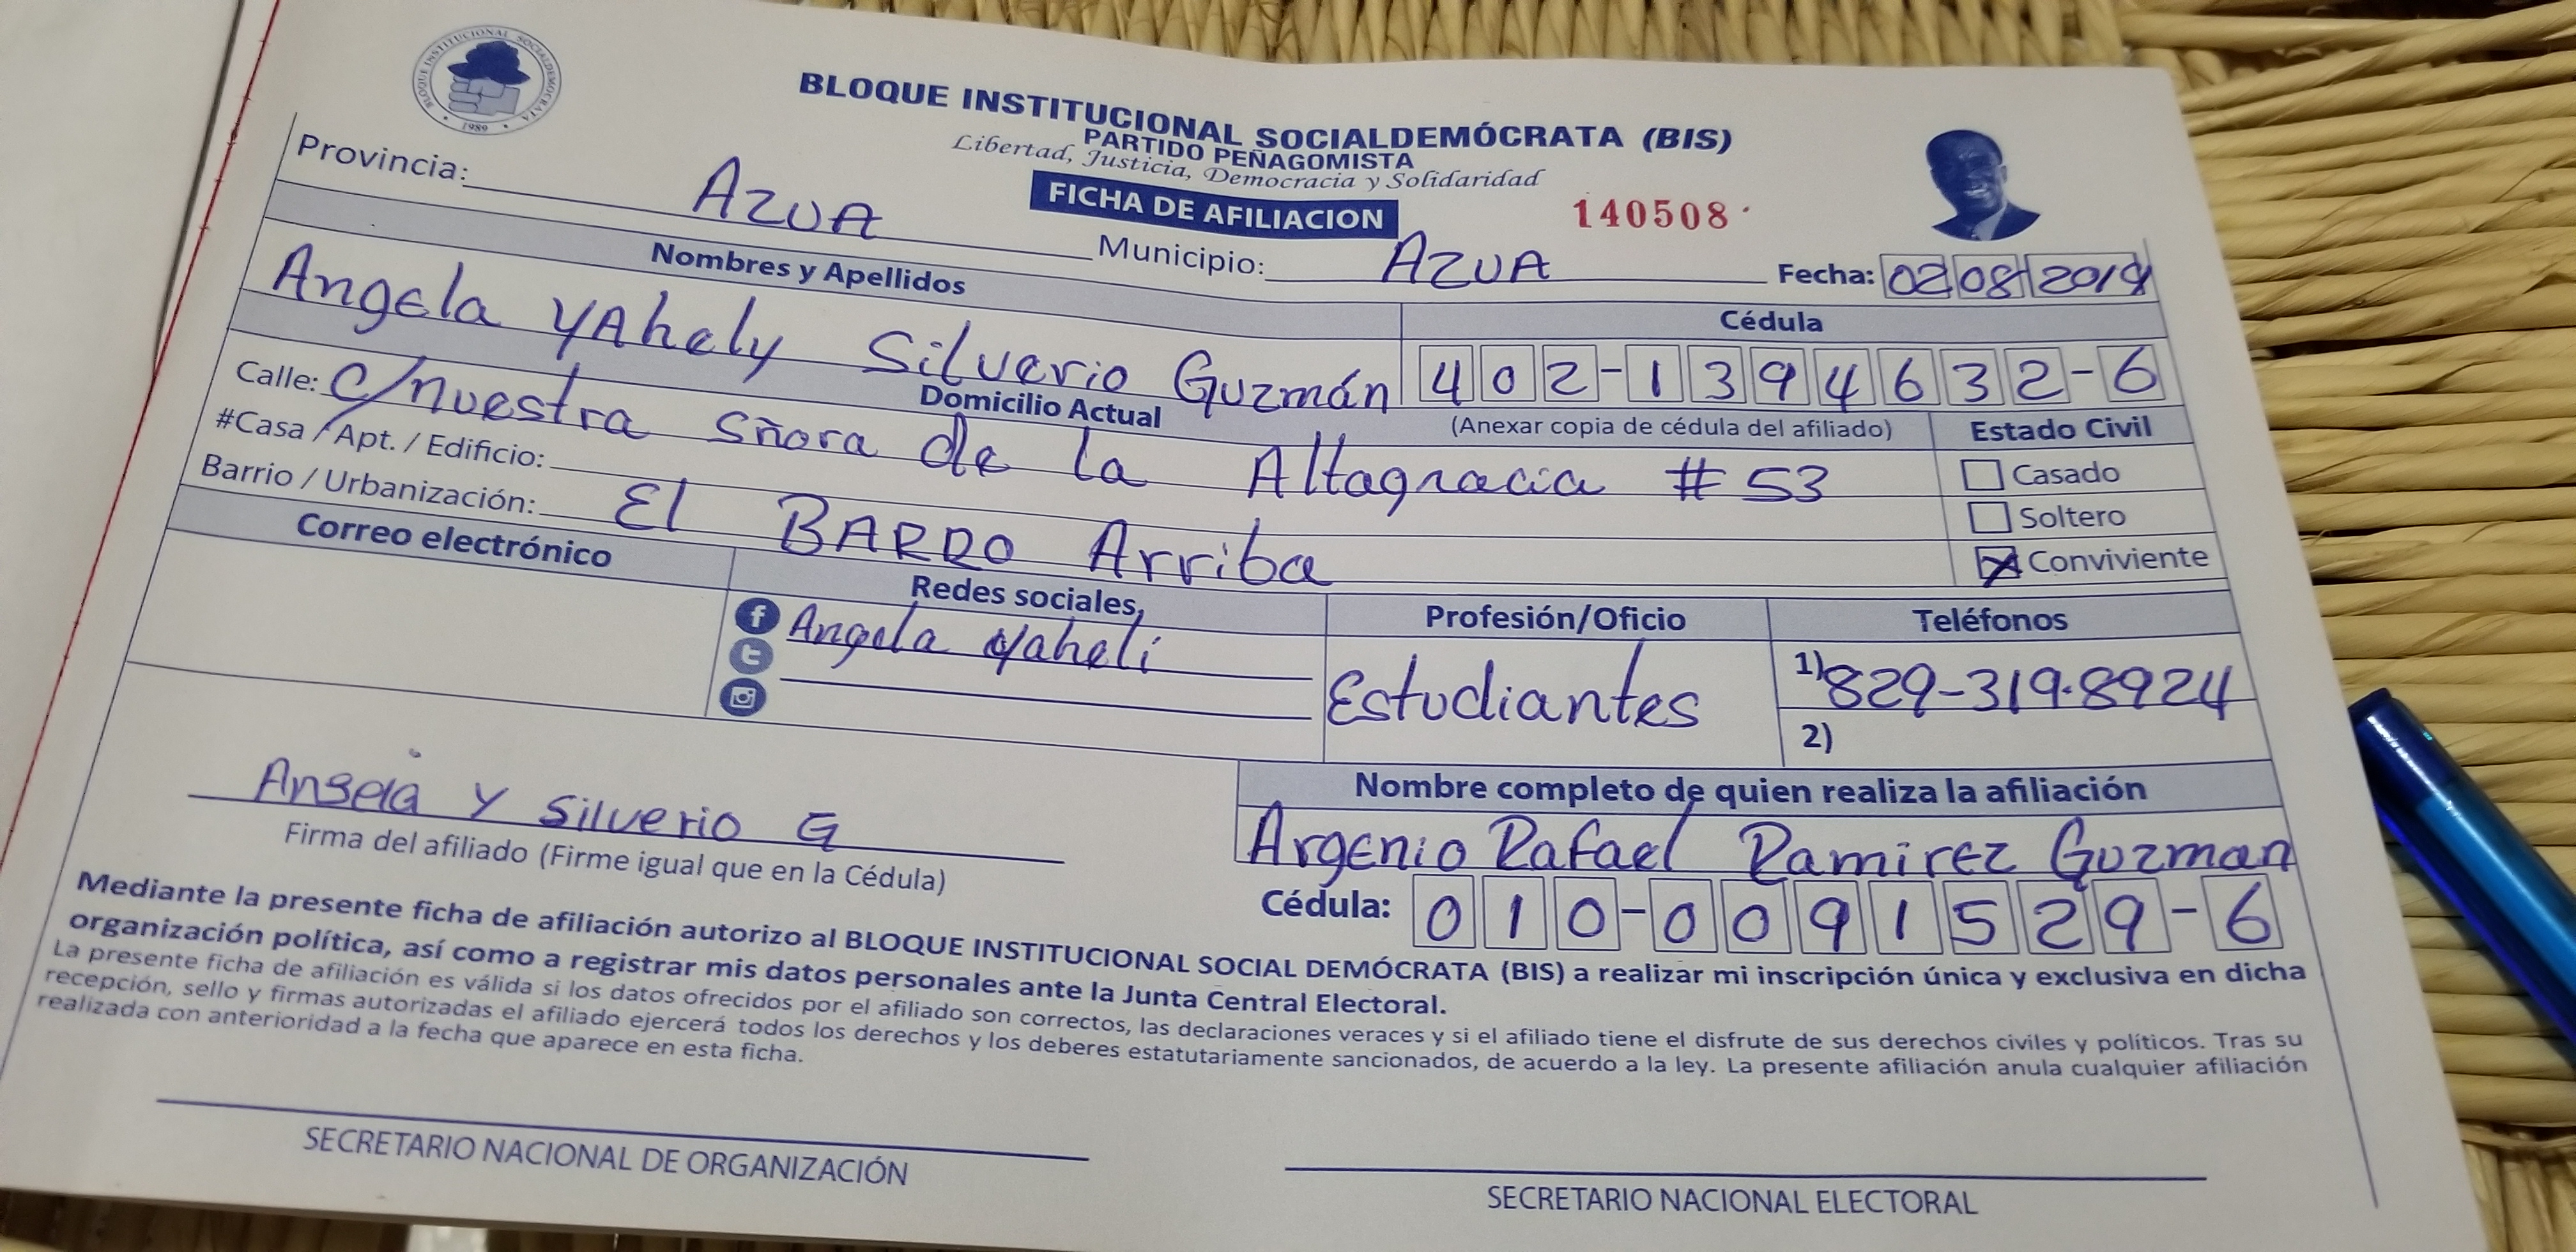 BLOQUE INSTITUCIONAL SOCIALDEMOCRATA
1989
BLOQUE INSTITUCIONAL SOCIALDEMÓCRATA (BIS)
PARTIDO PEÑAGOMISTA
Libertad, Justicia, Democracia y Solidaridad
FICHA DE AFILIACION 140508
Provincia: AZUA Municipio: AZUA Fecha: 02 08 2019
Nombres y Apellidos Cédula
Angela YAhely Silverio Guzmán 402-1394632-6
Domicilio Actual (Anexar copia de cédula del afiliado) Estado Civil
Calle: C/nuestra Sñora de la Altagracia # 53 Casado
#Casa / Apt. / Edificio: Soltero
Barrio / Urbanización: El BARRO Arriba Conviviente
Correo electrónico Redes sociales, Profesión/Oficio Teléfonos
Angela Yaheli Estudiantes 1) 829-319-8924
2)
Angela Y Silverio G
Firma del afiliado (Firme igual que en la Cédula)
Nombre completo de quien realiza la afiliación
Argenio Rafael Ramirez Guzman
Cédula: 010-0091529-6
Mediante la presente ficha de afiliación autorizo al BLOQUE INSTITUCIONAL SOCIAL DEMÓCRATA (BIS) a realizar mi inscripción única y exclusiva en dicha
organización política, así como a registrar mis datos personales ante la Junta Central Electoral.
La presente ficha de afiliación es válida si los datos ofrecidos por el afiliado son correctos, las declaraciones veraces y si el afiliado tiene el disfrute de sus derechos civiles y políticos. Tras su
recepción, sello y firmas autorizadas el afiliado ejercerá todos los derechos y los deberes estatutariamente sancionados, de acuerdo a la ley. La presente afiliación anula cualquier afiliación
realizada con anterioridad a la fecha que aparece en esta ficha.
SECRETARIO NACIONAL DE ORGANIZACIÓN
SECRETARIO NACIONAL ELECTORAL